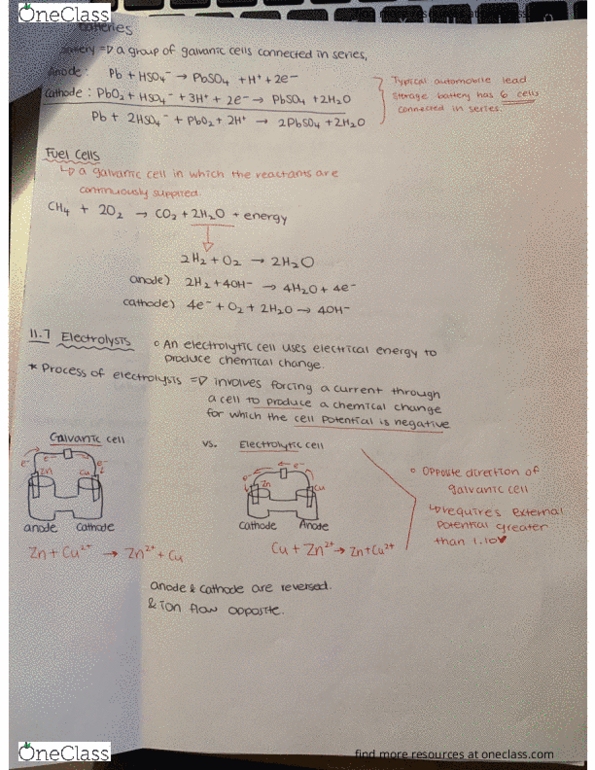 OneClass
find more resources at oneclass.com
Batteries
battery => a group of galvanic cells connected in series,
Anode: Pb + HSO4⁻ → PbSO4 + H⁺ + 2e⁻
Cathode: PbO2 + HSO4⁻ + 3H⁺ + 2e⁻ → PbSO4 + 2H2O
Pb + 2HSO4⁻ + PbO2 + 2H⁺ → 2PbSO4 + 2H2O
Typical automobile lead
storage battery has 6 cells
connected in series.
Fuel Cells
↳ a galvanic cell in which the reactants are
continuously supplied.
CH4 + 2O2 → CO2 + 2H2O + energy
2H2 + O2 → 2H2O
anode) 2H2 + 4OH⁻ → 4H2O + 4e⁻
cathode) 4e⁻ + O2 + 2H2O → 4OH⁻
11.7 Electrolysis
◦ An electrolytic cell uses electrical energy to
produce chemical change.
* Process of electrolysis => involves forcing a current through
a cell to produce a chemical change
for which the cell potential is negative
Galvanic cell
vs.
Electrolytic cell
e⁻ e⁻
Zn Cu
anode cathode
Zn + Cu²⁺ → Zn²⁺ + Cu
e⁻ e⁻
Zn Cu
cathode Anode
Cu + Zn²⁺ → Zn + Cu²⁺
◦ Opposite direction of
galvanic cell
↳ requires external
potential greater
than 1.10V
anode & cathode are reversed.
& ion flow opposite.
OneClass
find more resources at oneclass.com